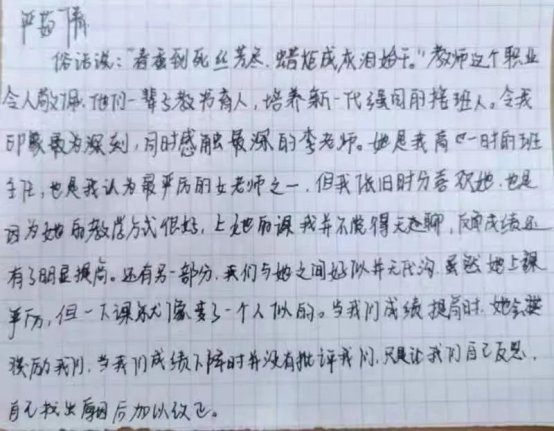 严茹倩
俗话说:“春蚕到死丝芳尽,蜡炬成灰泪始干。”教师这个职业
令人敬佩,他们一辈子教书育人,培养新一代强国的接班人。令我
印象最为深刻,同时感触最深的李老师。她是我高一时的班
主任,也是我认为最严厉的女老师之一,但我依旧时分喜欢她,也是
因为她的教学方式很好,上她的课我并不觉得无趣聊,反而成绩还
有了明显提高。还有另一部分,我们与她之间好似并无代沟,虽然她上课
严厉,但一下课就像变了一个人似的。当我们成绩提高时,她会
奖励我们,当我们成绩下降时并没有批评我们,只是让我们自己反思,
自己找出原因后加以改正。